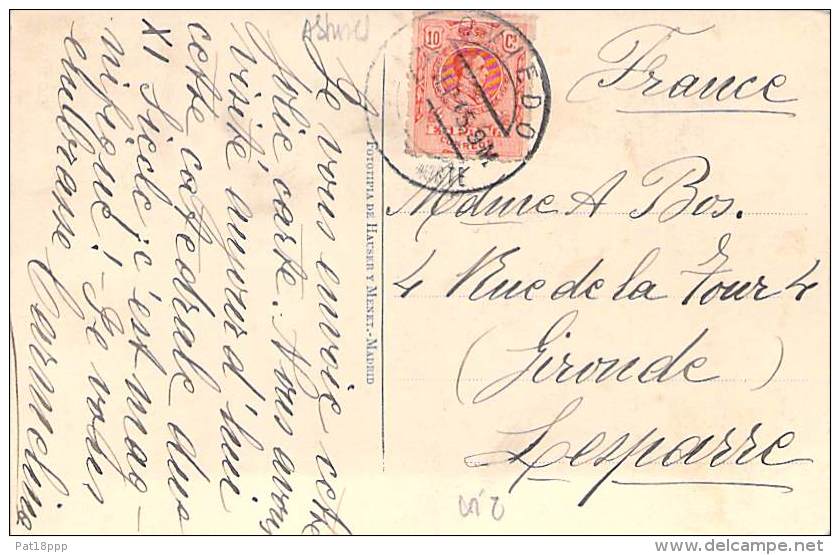 Je vous envoie cette
jolie carte. Nous avons
visité aujourd'hui
cette catedrale dus
XI siècle c'est mag-
nifique! - Je vous
embrasse
Carmelina
FOTOTIPIA DE HAUSER Y MENET.-MADRID
10 Cs
OVIEDO
France
Mdme A Bos.
4 Rue de la Tour 4
(Gironde)
Lesparre
Pat18ppp
delcampe.net